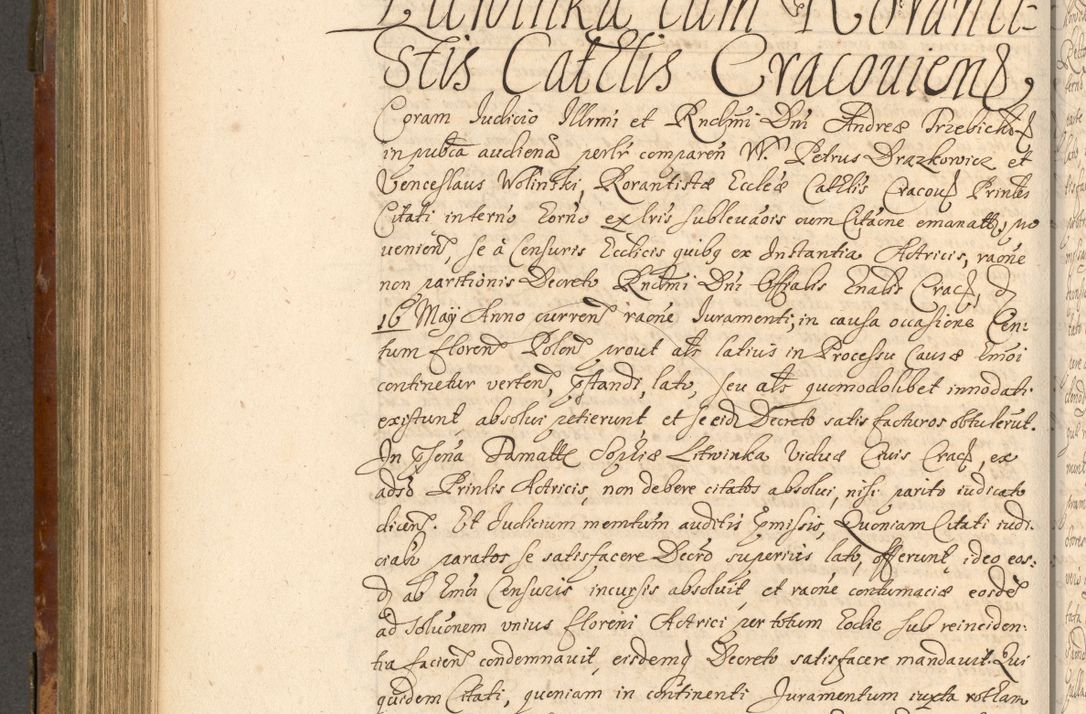 Litwinka cum Roranti-
stis Cathlis Cracouiens
Coram Judicio Illrmi et Rndmi Dni Andreæ Trzebicki
in pubca audiena perlr comparen Wm Petrus Drazkowicz et
Venceslaus Wolinski, Rorantistæ Eccleæ Cathlis Cracou Prinles
Citati interno Eorno ex lris subleuaois cum Citaone emanatt, pro
uenien, se à Censuris Ecclicis quibq ex Instantia Actricis, raone
non paritionis Decreto Rndmi Dni Offialis Gnalis Crac, d
16 Maij Anno curren raone Juramenti, in causa occasione Cen:
tum floren Polon prout alr latius in Processu Causæ Emoi
continetur verten, pstandi, lato, seu alr quomodolibet innodati
existunt absolui petierunt et se eid Decreto satis facturos obtulerut.
In psena Famattæ Sophiæ Litwinka Viduæ Ciuis Crac, ex
adso Prinlis Actricis, non debere citatos absolui, nisi parito iudicato
dicen. Et Judicium memtum auditis pmissis, Quoniam Citati iudi
cialr paratos se satisfacere Decro superius lato, offerunt, ideo eos:
d ab Emoi Censuris incursis absoluit, et raone contumaciæ eosde
ad soluonem vnius floreni Actrici per totum hodie sub reinciden:
tia facien condemnauit, eisdemq Decreto satisfacere mandauit. Qui
quidem Citati, quoniam in continenti Juramentum iuxta rotham